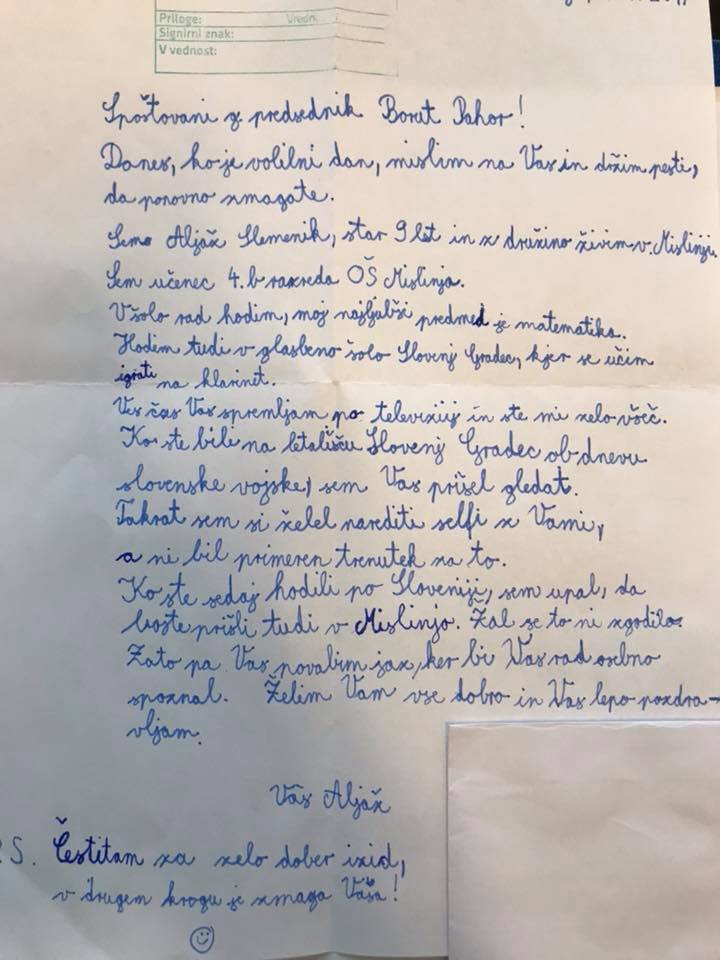 Priloge:
Vredn.
Signirni znak:
V vednost:
Spoštovani g. predsednik Borut Pahor!
Danes, ko je volilni dan, mislim na Vas in držim pesti,
da ponovno zmagate.
Sem Aljaž Slemenik, star 9 let in z družino živim v Mislinji.
Sem učenec 4. b razreda OŠ Mislinja.
V šolo rad hodim, moj najljubši predmed je matematika.
Hodim tudi v glasbeno šolo Slovenj Gradec, kjer se učim
igrati na klarinet.
Ves čas Vas spremljam po televiziji in ste mi zelo všeč.
Ko ste bili na letališču Slovenj Gradec ob dnevu
slovenske vojske, sem Vas prišel gledat.
Takrat sem si želel narediti selfi z Vami,
a ni bil primeren trenutek na to.
Ko ste sedaj hodili po Sloveniji, sem upal, da
boste prišli tudi v Mislinjo. Žal se to ni zgodilo.
Zato pa Vas povabim jaz, ker bi Vas rad osebno
spoznal. Želim Vam vse dobro in Vas lepo pozdra-
vljam.
Vaš Aljaž
S. Čestitam za zelo dober izid,
v drugem krogu je zmaga Vaša!